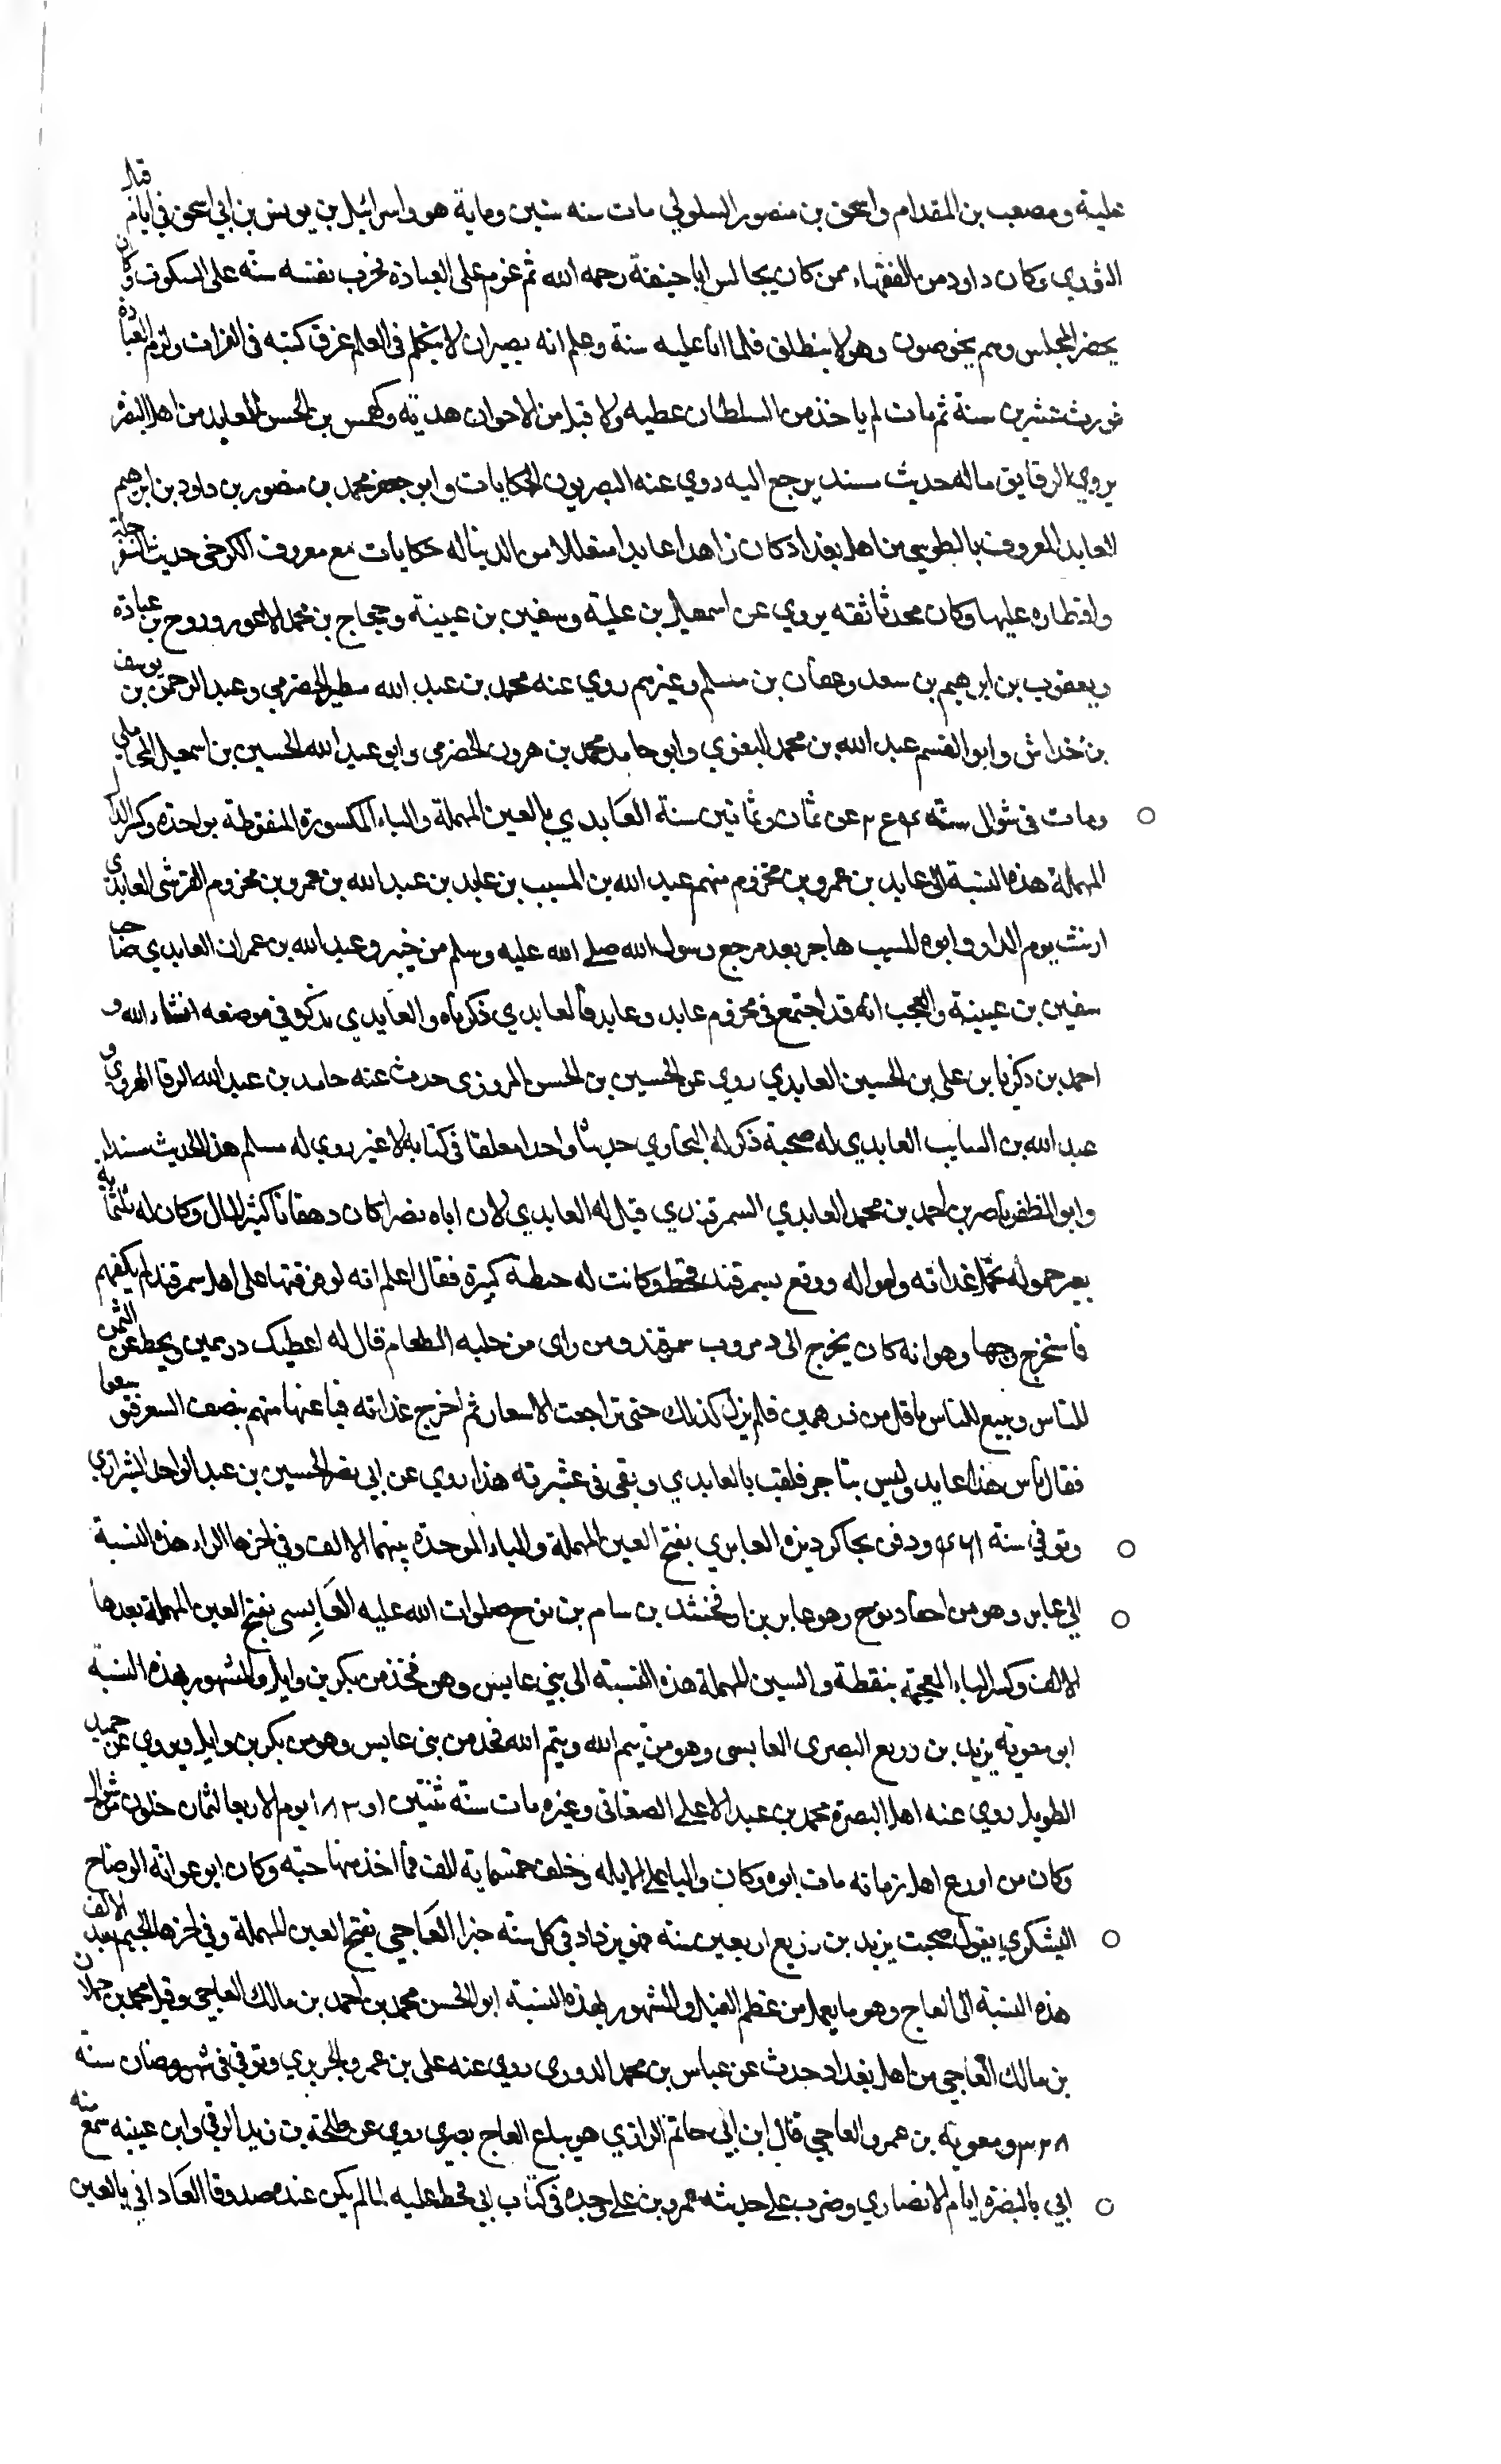 علية ومصعب بن المقدام واسحق بن منصور السلولي مات سنة ستين وماية هو واسرائيل بن يونس بن ابي اسحق في ايام قال
الثوري وكان داود من الفقهاء ممن كان يجالس ابا حنيفة رحمه الله ثم عزم على العبادة فجرب نفسه سنة على السكوت وكان
يحضر المجلس وهم يخوضون وهو لا ينطلق فلما اتا عليه سنة وعلم انه يصبر ان لا يتكلم في العلم غرق كتبه في الفرات ولزم العبادة
ثم ورث عشرين سنة ثم مات لم ياخذ من السلطان عطيه ولا قبل من الاخوان هديه وكهمس بن الحسن العابد من اهل البصرة
يروي الرقايق ماله حديث مسند يرجع اليه روي عنه البصريون الحكايات وابو جعفر محمد بن منصور بن داود بن ابرهيم
العابد المعروف بالطوسي من اهل بغداد كان زاهدا عابدا متقللا من الدينا له حكايات مع معروف الكرخي حديث السفرجلة
وافطاره عليها وكان محدثا ثقه يروي عن اسمعيل بن علية وسفين بن عيينة وحجاج بن محمد الاعور وروح بن عبادة
ويعقوب بن ابرهيم بن سعد وعفان بن مسلم وغيرهم روي عنه محمد بن عبد الله مطير الحضرمي وعبد الرحمن بن يوسف
بن خداش وابو القسم عبد الله بن محمد البغوي وابو حامد محمد بن هرون الحضرمي وابو عبد الله الحسين بن اسمعيل المحاملي
ومات في شوال سنة ٢٥٤ عن ثمان وثمانين سنة العابدي بالعين المهملة والباء المكسورة المنقوطة بواحدة وكسر الدال
المهملة هذه النسبة الى عابد بن عمرو بن مخزوم منهم عبد الله بن المسيب بن عابد بن عبد الله بن عمرو بن مخزوم القرشي العابدي
ارتث يوم الدار وابوه المسيب هاجر بعد مرجع رسول الله صلى الله عليه وسلم من خيبر وعبد الله بن عمران العابدي صاحب
سفين بن عيينة والعجب انه قد اجتمع في مخزوم عابد وعايد فالعابدي ذكرناه والعايدي نذكره في موضعه انشاء الله و
احمد بن زكريا بن علي بن الحسين العابدي روي عن الحسين بن الحسن المروزي حدث عنه حامد بن عبد الله الرفا الهروي و
عبد الله بن السايب العابدي له صحبة ذكر له البخاري حديثا واحدا معلقا في كتابه لا غير روي له مسلم هذا الحديث مسندا
وابو المظفر ناصر بن احمد بن محمد العابدي السمرقندي قيل له العابدي لان اباه نصرا كان دهقانا كثير المال وكان له ثلثماية
بعير حمولة تحمل غداته واموا له ووقع بسمرقند قحط وكانت له حنطة كبيرة فقال اعلم انه لو فرقتها على اهل سمرقند لم يكفهم
فاستخرج وجها وهو انه كان يخرج الى دروب سمرقند ومن راى من جلبه الطعام قال له اعطيك درهمين ويحط عن الثمن
للناس ويبيع للناس باقل من درهمين فلم يزل كذلك حتى تراجعت الاسعار ثم اخرج غداته فباعها منهم بنصف السعر فتعجبوا
فقال ناس هذا عابد وليس بتاجر فلقب بالعابدي وبقى في عشرته هذا روي عن ابي نصر الحسين بن عبد الواحد الشيرازي
وتوفي سنة ٤٦١ ودفن بجاكرديزه العابري بفتح العين المهملة والباء الموحدة بينهما الالف وفي اخرها الراء هذه النسبة
الى عابر وهو من احفاد نوح وهو عابر بن ارفخشد بن سام بن نوح صلوات الله عليه العابسي بفتح العين المهملة بعدها
الالف وكسر الباء المعجمة بنقطة والسين المهملة هذه النسبة الى بني عابس وهي فخذ من بكر بن وايل والمشهور بهذه النسبة
ابو معوية يزيد بن زريع البصري العابسي وهو من تيم الله وتيم الله فخذ من بني عابس وهو من بكر بن وايل ويروي عن حميد
الطويل روي عنه اهل البصرة محمد بن عبد الاعلى الصغاني وغيره مات سنة ثنتين او ١٨٣ يوم الاربعا لثمان خلون من شوال
وكان من اورع اهل زمانه مات ابوه وكان واليا على الابله وخلف خمسماية الف فما اخذ منها حبه وكان ابو عوانة الوضاح
اليشكري يقول صحبت يزيد بن زريع اربعين سنة فهو يزداد في كل سنه خيرا العاجي بفتح العين المهملة وفي اخرها الجيم بعد الالف
هذه النسبة الى العاج وهو ما يعمل من عظم الفيل والمشهور بهذه النسبة ابو الحسن محمد بن احمد بن مالك العاجي وقيل محمد بن حملان
بن مالك العاجي من اهل بغداد حدث عن عباس بن محمد الدوري روي عنه علي بن عمرو الحريري وتوفي في شهر رمضان سنة
٣٢٨ ومعوية بن عمرو العاجي قال ابن ابي حاتم الرازي هو بياع العاج بصري روي عن طلحة بن زيد الرقي وابن عيينه سمع منه
ابي بالبصرة ايام الانصاري وضرب على حديثه عمرو بن علي وجده في كتاب ابي فخط عليه لما لم يكن عنده صدوقا العاداني بالعين